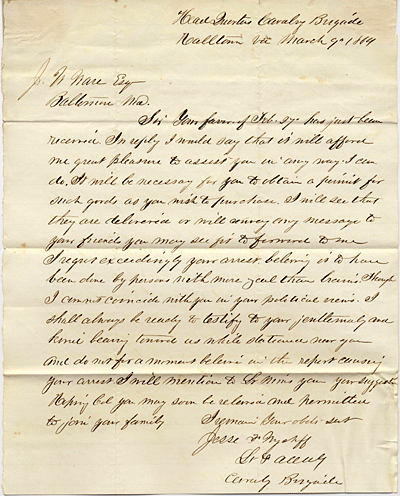 Head Quarters Cavalry Brigade
Halltown Va March 9th 1864
J. W. Ware Esq
Baltimore Md.
Sir Your favor of Feb. 27th has just been
received. In reply I would say that it will afford
me great pleasure to assist you in any way I can
do. It will be necessary for you to obtain a permit for
such goods as you wish to purchase. I will see that
they are delivered or will convey any message to
your friends you may see fit to forward to me
I regret exceedingly your arrest, beliving is to have
been done by persons with more zeal than brains. Though
I cannot coincide with you in your political views. I
shall always be ready to testify to your gentlemanly and
kind bearing toward us while stationed near you
and do not for a moment believe in the report causing
your arrest I will mention to Lt your suggestion
Hoping Col you may soon be released and permitted
to join your family
I remain Your obdt svt
Jesse F Wyckoff
Lt &
Cavalry Brigade